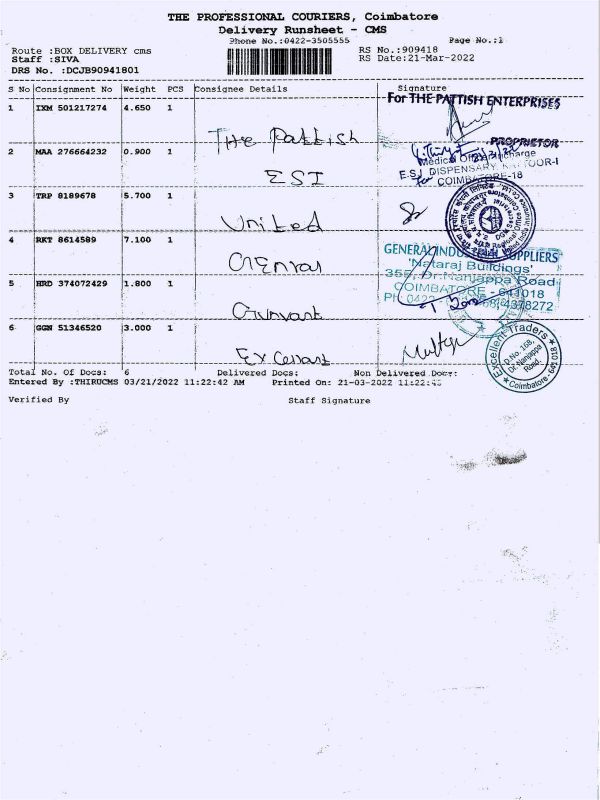 THE PROFESSIONAL COURIERS, Coimbatore
Delivery Runsheet - CMS
Phone No.:0422-3505555
Page No.:1
Route :BOX DELIVERY cms
RS No.:909418
Staff :SIVA
RS Date:21-Mar-2022
DRS No. :DCJB90941801
S No Consignment No Weight PCS Consignee Details Signature
For THE PATTISH ENTERPRISES
1 IXM 501217274 4.650 1
The Pattish
PROPRIETOR
2 MAA 276664232 0.900 1
Medical Officer Incharge
E.S.I. DISPENSARY
ESI
for COIMBATORE-18
3 TRP 8189678 5.700 1
United
4 RKT 8614589 7.100 1
GENERAL INDUSTRIAL SUPPLIERS
'Nataraj Buildings'
355, Dr. Nanjappa Road
5 HRD 374072429 1.800 1
COIMBATORE - 641018
PH: 0422 4378272
Gunvant
6 GGN 51346520 3.000 1
Excellent Traders
D.No. 168,
Dr. Nanjappa
Road,
Coimbatore - 641 018
Total No. Of Docs: 6 Delivered Docs: Non Delivered Docs:
Entered By :THIRUCMS 03/21/2022 11:22:42 AM Printed On: 21-03-2022 11:22:43
Verified By Staff Signature